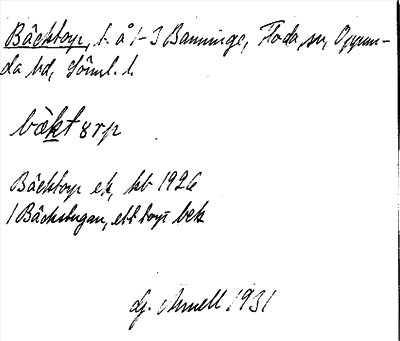 Bäcktorp, t. å 1-3 Banninge, Floda sn, Oppun-
da hd, Söml. l.
bàkt ɷrp
Bäcktorp ek, kb 1926
/ Bäckstugan, ett torp bek
af. Arnell 1931